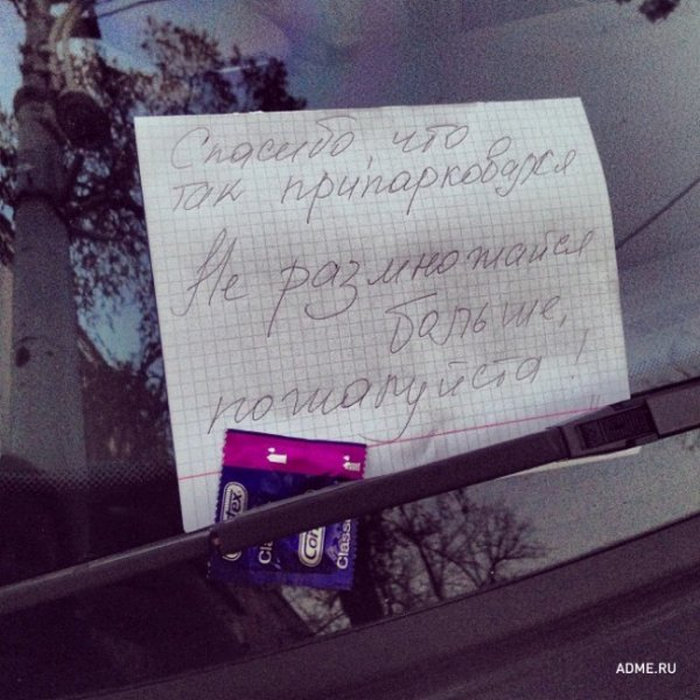 Спасибо, что
так припарковался
Не размножайся
больше,
пожалуйста!
Contex
Classic
Contex
Classic
ADME.RU